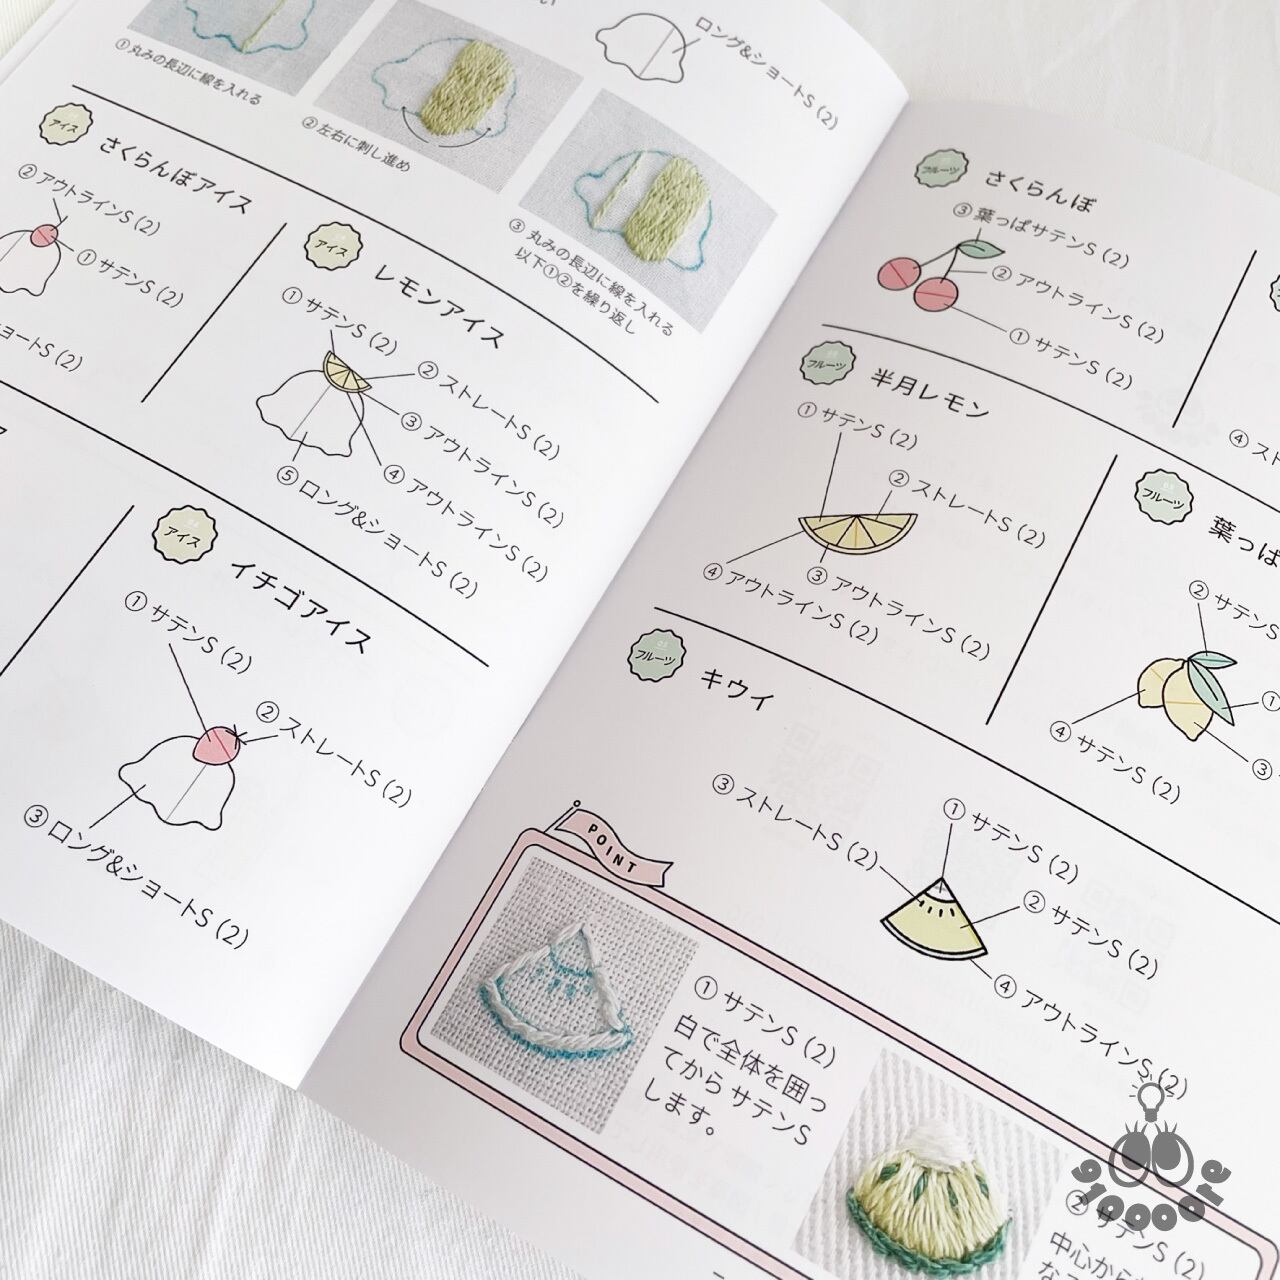 ①丸みの長辺に線を入れる
②左右に刺し進め
③ 丸みの長辺に線を入れる
以下①②を繰り返し
ロング&ショートS（2）
アイス
さくらんぼアイス
② アウトラインS（2）
① サテンS（2）
ョートS（2）
アイス
レモンアイス
① サテンS（2）
② ストレートS（2）
③ アウトラインS（2）
④ アウトラインS（2）
⑤ ロング&ショートS（2）
アイス
イチゴアイス
① サテンS（2）
② ストレートS（2）
③ ロング&ショートS（2）
フルーツ
さくらんぼ
③ 葉っぱサテンS（2）
② アウトラインS（2）
① サテンS（2）
④ スト
フルーツ
半月レモン
① サテンS（2）
② ストレートS（2）
③ アウトラインS（2）
④ アウトラインS（2）
フルーツ
葉っぱ
② サテンS
①
④ サテンS（2）
③
フルーツ
キウイ
③ ストレートS（2）
① サテンS（2）
② サテンS（2）
④ アウトラインS（2）
POINT
① サテンS（2）
白で全体を囲っ
てから サテンS
します。
② サテンS（2）
中心から